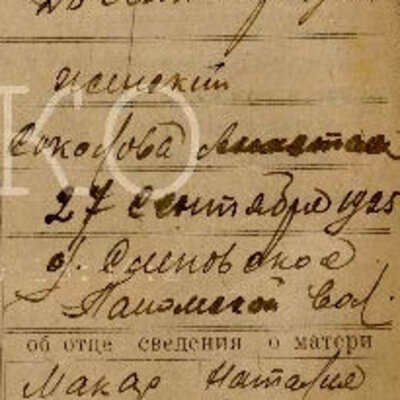 женский
Соколова Анастас
27 Сентября 1925
д. Сменовское
Паномской вол.
об отце сведения о матери
Макар Наталия